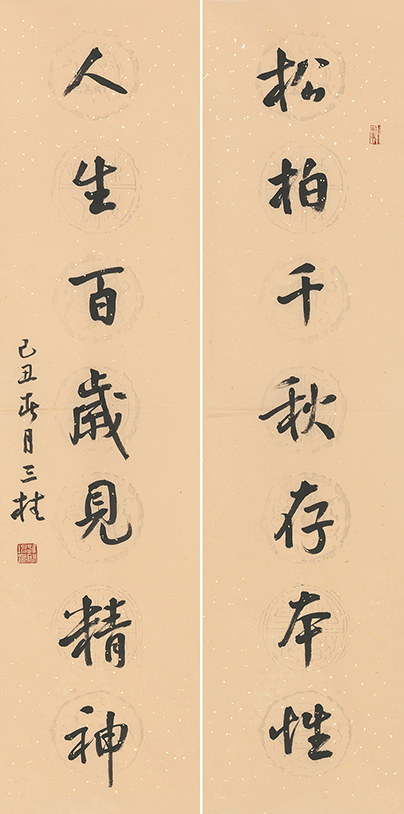 松柏千秋存本性
人生百歲見精神
己丑春月三桂